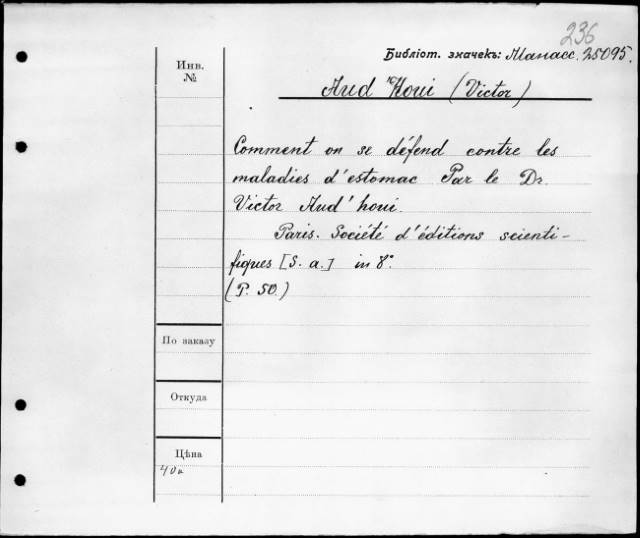 236
Библіот. значекъ: Манасс. 25095.
Инв.
№
Aud'Houi (Victor)
Comment on se défend contre les
maladies d'estomac Par le Dr.
Victor Aud'houi.
Paris. Société d'éditions scienti-
fiques [S. a.] in 8°.
(P. 50.)
По заказу
Откуда
Цѣна
40к